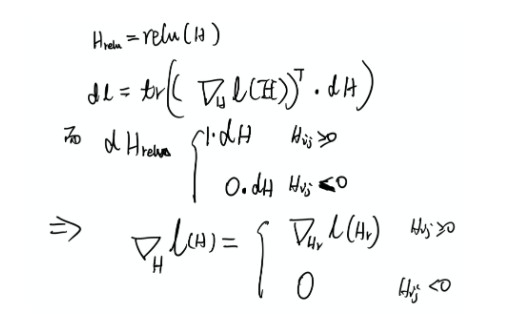 H_relu = relu(H)
dl = tr((∇_H l(H))^T · dH)
而 dH_relu { 1·dH H_ij ≥ 0
0·dH H_ij < 0
⇒ ∇_H l(H) = { ∇_Hr l(Hr) H_ij ≥ 0
0 H_ij < 0